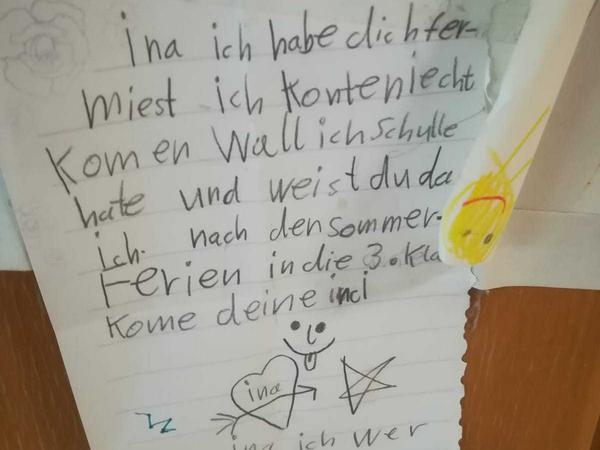 ina ich habe dich fer-
miest ich konte niecht
komen wall ich schulle
hate und weist du da
ich nach den sommer-
Ferien in die 3. Kla
kome deine inci
ina
ina ich wer